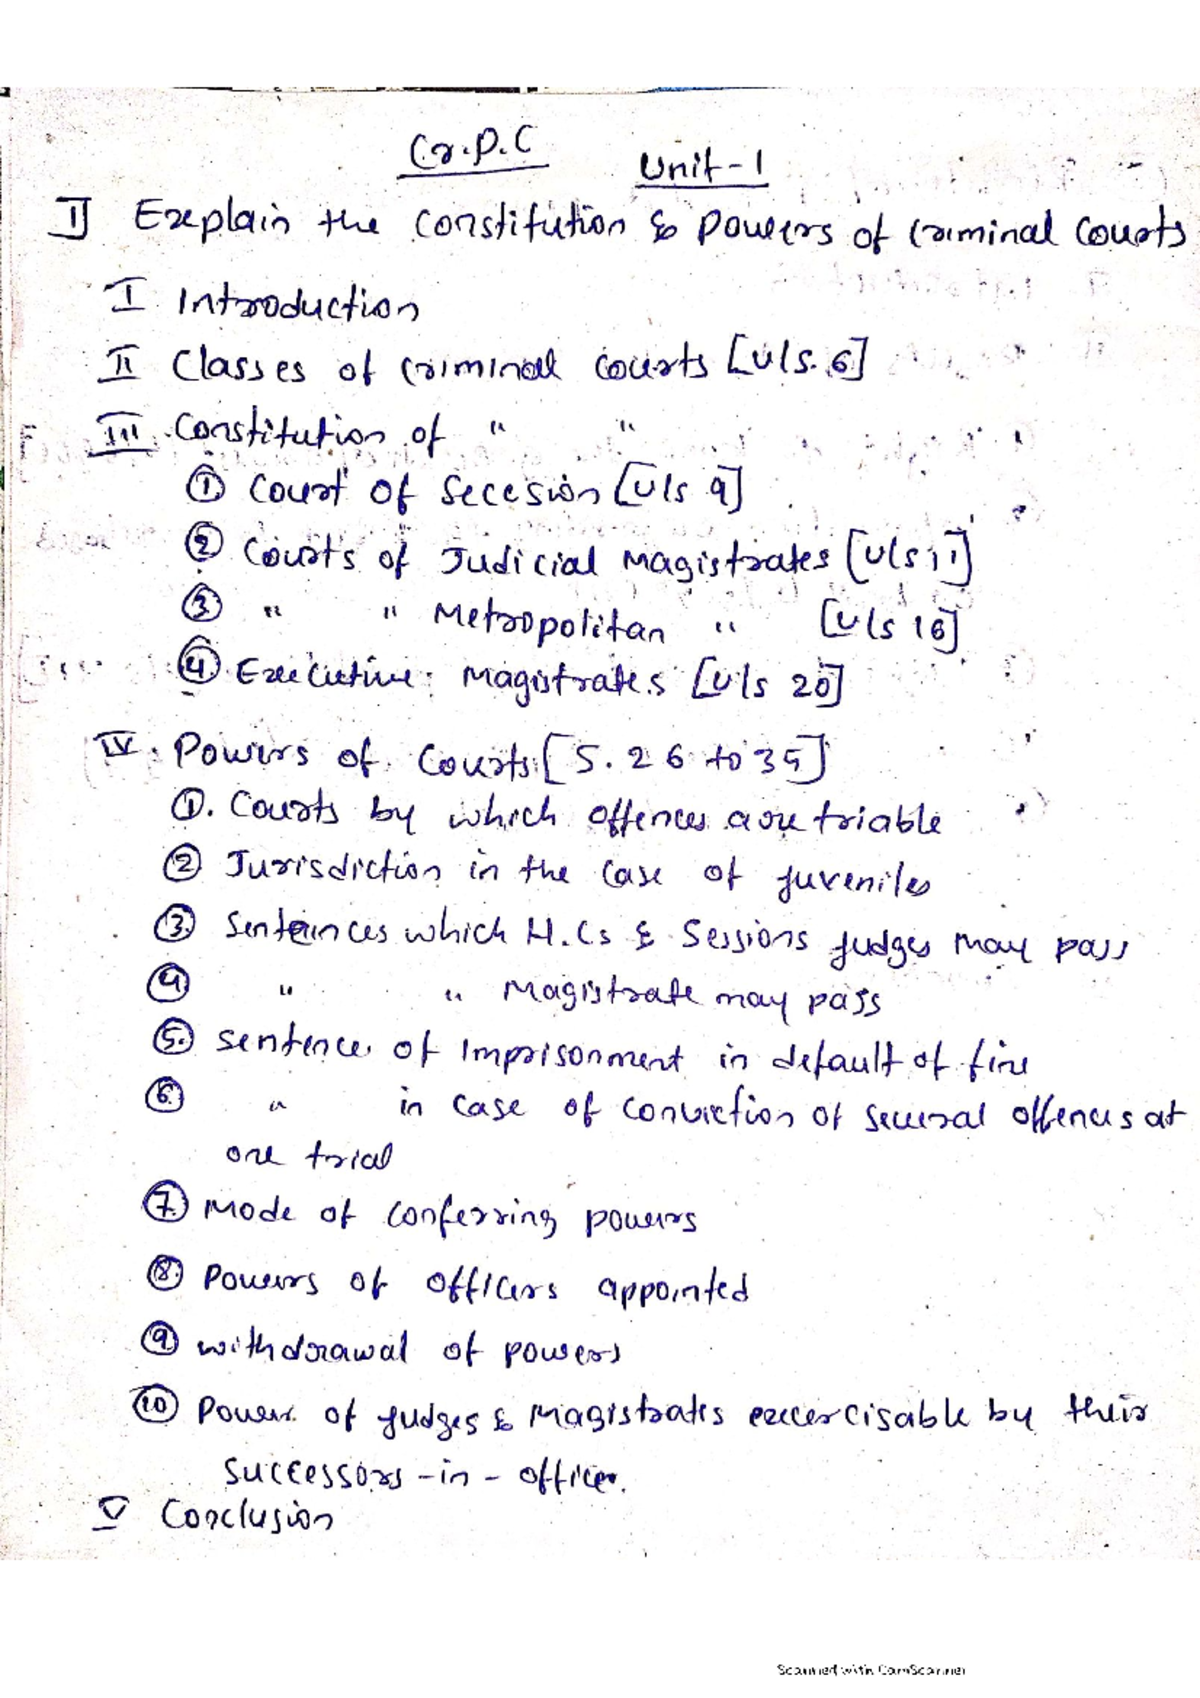 Cr.P.C
Unit-1
1] Explain the constitution & Powers of Criminal Courts
I Introduction
II Classes of Criminal Courts [U/s. 6]
III Constitution of " "
① Court of Secesion [U/s 9]
② Courts of Judicial Magistrates [U/s 11]
③ " " Metropolitan " [U/s 16]
④ Executive Magistrates [U/s 20]
IV. Powers of Courts [S. 26 to 35]
①. Courts by which offences are triable
② Jurisdiction in the case of Juveniles
③ Sentences which H.Cs & Sessions Judges may pass
④ " " Magistrate may pass
⑤. Sentence of Imprisonment in default of fine
⑥ " in case of conviction of several offences at
one trial
⑦. Mode of conferring powers
⑧. Powers of officers appointed
⑨ withdrawal of powers
⑩ Power of Judges & Magistrates excercisable by their
Successors-in-office.
V Conclusion
Scanned with CamScanner